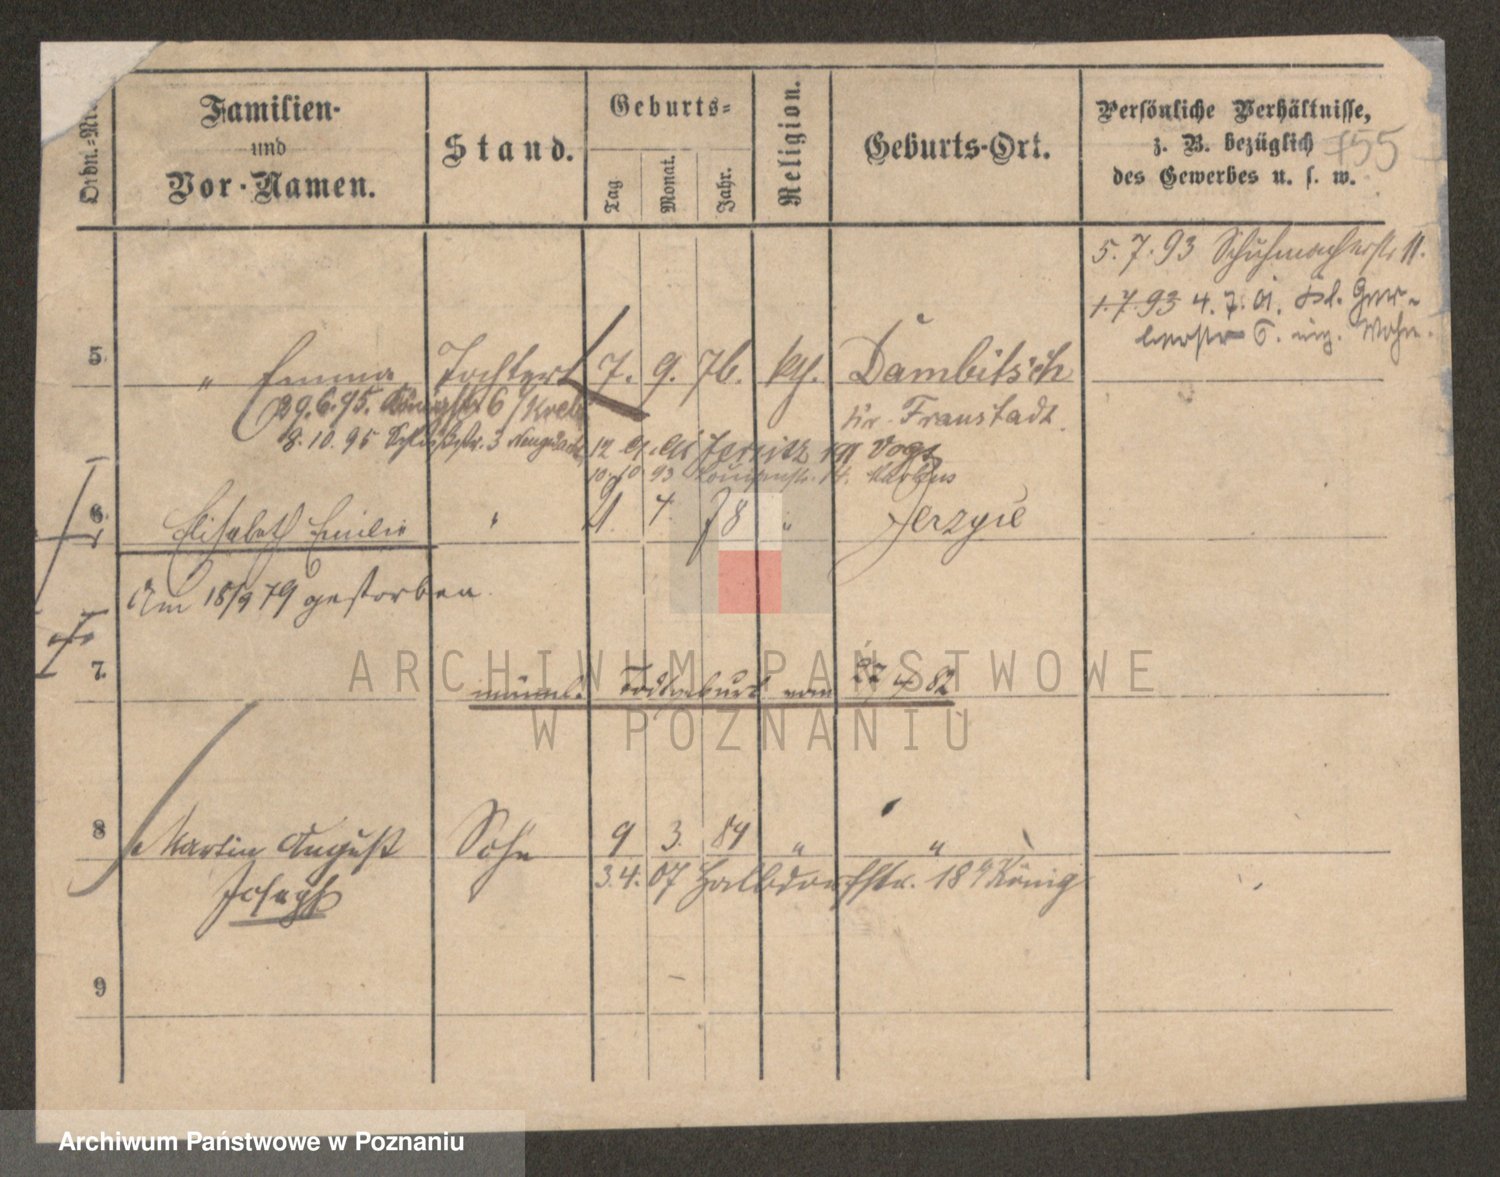 Ordn.-Nr.
Familien-
und
Vor-Namen.
Stand.
Geburts-
Tag
Monat.
Jahr.
Religion.
Geburts-Ort.
Persönliche Verhältnisse,
z. B. bezüglich
des Gewerbes u. s. w.
155
5. 7. 93 Schuhmacherstr 11.
1. 7. 93 4. 7. 01.
5. " Emma Tochter 7. 9. 76. kth. Dambitsch
29. 6. 95. 6 Kr. Fraustadt.
8. 10. 95 3 12 Jersitz Vogt
10. 10 93
6. Elisabeth Emilie " 4. 78 " Jerzyce
Am 18/9 79 gestorben.
7. vom 22 4 82
8 Martin August Sohn 9 3. 84 " "
Joseph 3. 4. 07 Halbdorfstr. 18 König
9
ARCHIWUM PAŃSTWOWE
W POZNANIU
Archiwum Państwowe w Poznaniu